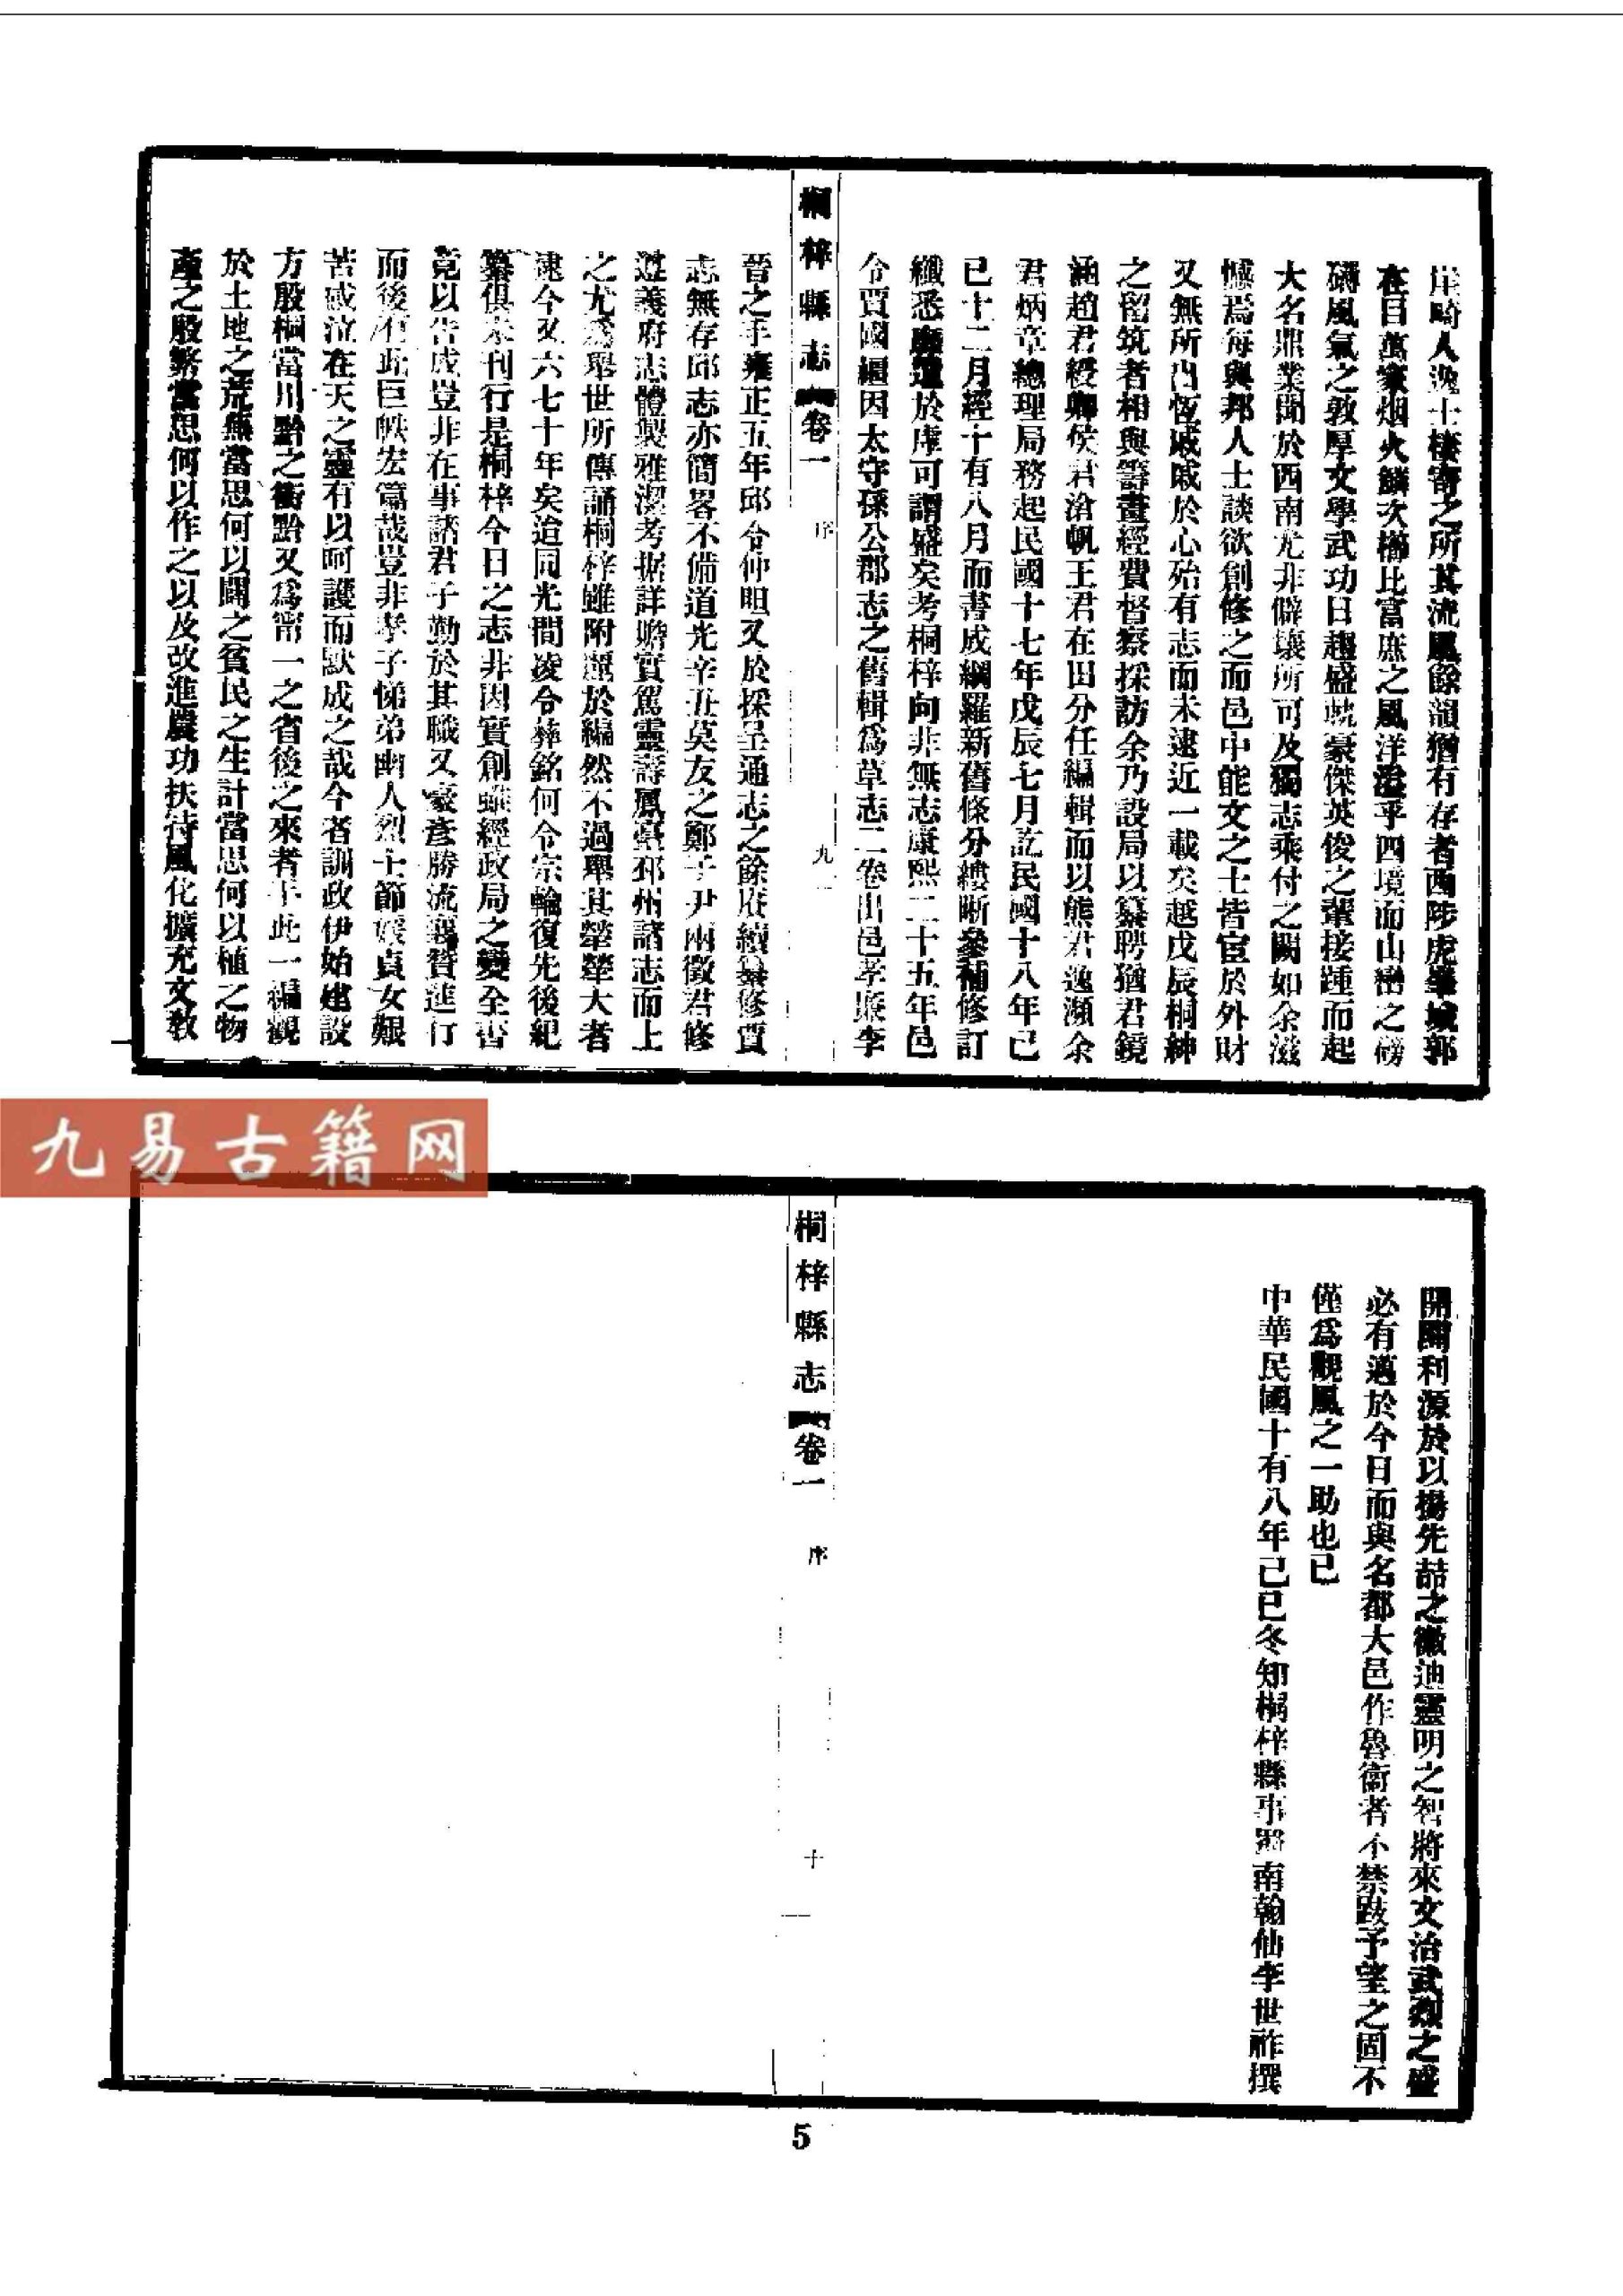 崖畸人逸士棲寄之所其流風餘韻猶有存者西陟虎峯城郭
在目萬家烟火鱗次櫛比富庶之風洋溢乎四境而山巒之磅
礴風氣之敦厚文學武功日趨盛軌豪傑英俊之輩接踵而起
大名鼎業聞於西南尤非僻壤所可及獨志乘付之闕如余滋
憾焉每與邦人士談欲創修之而邑中能文之士皆宦於外財
又無所出恆戚戚於心殆有志而未逮近一載矣越戊辰桐紳
之留筑者相與籌畫經費督察採訪余乃設局以纂聘猶君鏡
涵趙君綬卿侯君滄帆王君在田分任編輯而以熊君逸瀕余
君炳章總理局務起民國十七年戊辰七月訖民國十八年己
巳十二月經十有八月而書成綱羅新舊條分縷晰參補修訂
纖悉靡遺於虖可謂盛矣考桐梓向非無志康熙二十五年邑
令賈國繼因太守孫公郡志之舊輯爲草志二卷出邑孝廉李
桐梓縣志 卷一 序 九
晉之手雍正五年邱令仲䀢又於採呈通志之餘賡續纂修賈
志無存邱志亦簡畧不備道光辛丑莫友之鄭子尹兩徵君修
遵義府志體製雅潔考据詳贍實駕靈壽鳳臺邳州諸志而上
之尤爲舉世所傳誦桐梓雖附麗於編然不過舉其犖犖大者
逮今又六七十年矣迨同光間凌令彝銘何令宗輪復先後紀
纂俱未刊行是桐梓今日之志非因實創雖經政局之變全書
竟以告成豈非在事諸君子勤於其職又豪彥勝流襄贊進行
而後有此巨帙宏篇哉豈非孝子悌弟幽人烈士節媛貞女艱
苦感泣在天之靈有以呵護而默成之哉今者訓政伊始建設
方殷桐當川黔之衝黔又爲甯一之省後之來者手此一編觀
於土地之荒蕪當思何以闢之貧民之生計當思何以植之物
產之殷繁當思何以作之以及改進農功扶持風化擴充文敎
九易古籍网
開闢利源於以揚先喆之徽迪靈明之智將來文治武烈之盛
必有邁於今日而與名都大邑作魯衞者不禁跂予望之固不
僅爲觀風之一助也已
中華民國十有八年己巳冬知桐梓縣事 南翰仙李世祚撰
桐梓縣志 卷一 序 十
5